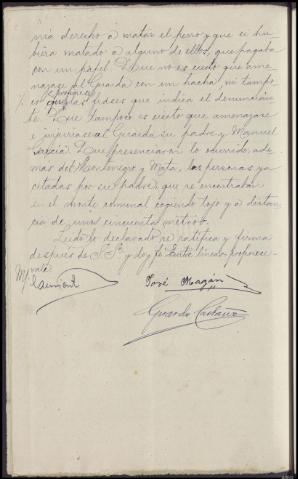 nía derecho á matar el perro y que si hu-
biera matado á alguno de ellos, que pagaba
con un papel. Que no es cierto que ame-
nazase al Guarda con un hacha, ni tampo-
co con las frases que indica el denuncian-
te. Que tampoco es cierto que amenazara
é injuriase al Guarda su padre y Manuel
García. Que presenciaron lo ocurrido, ade-
más del Montenegro y Mata, las personas ya
citadas por su padre, que se encontraban
en el monte comunal cogiendo tojo y á distan-
cia de unos cincuenta metros.
Leído lo declarado se ratifica y firma
después de S. Sª y doy fe. Entre líneas
vale
José Magán
Gerardo